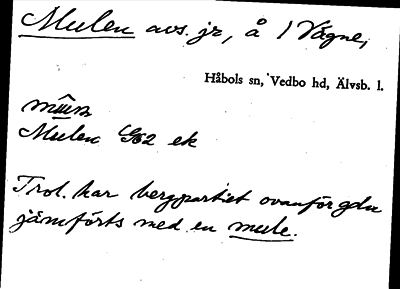 Mulen avs. jr, å 1 Vågne,
Håbols sn, Vedbo hd, Älvsb. l.
Mulen G62 ek
Trol. har bergpartiet ovanför gdn
jämförts med en mule.